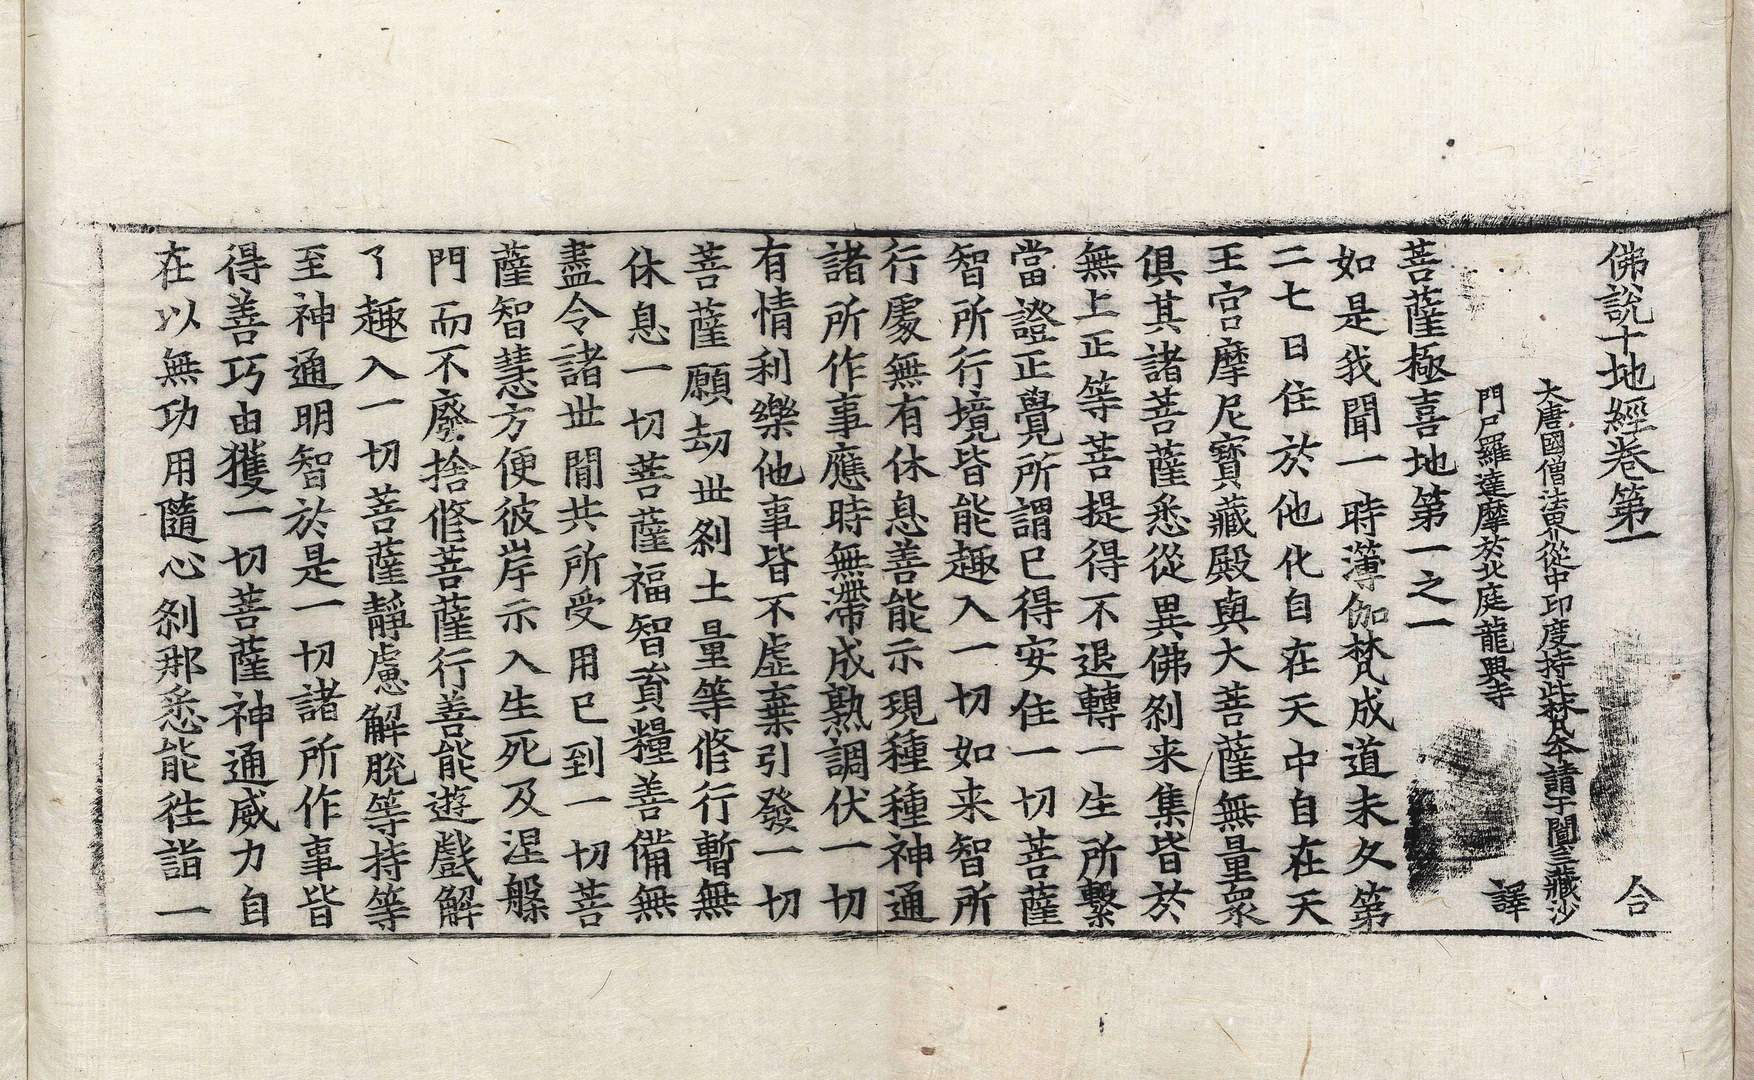 佛說十地經卷第一 合
大唐國僧法界從中印度持此梵夲請于闐三藏沙
門尸羅達摩於北庭龍興寺 譯
菩薩極喜地第一之一
如是我聞一時薄伽梵成道未久第
二七日住於他化自在天中自在天
王宮摩尼寶藏殿與大菩薩無量衆
俱其諸菩薩悉從異佛刹来集皆於
無上正等菩提得不退轉一生所繫
當證正覺所謂已得安住一切菩薩
智所行境皆能趣入一切如来智所
行處無有休息善能示現種種神通
諸所作事應時無滯成熟調伏一切
有情利樂他事皆不虛棄引發一切
菩薩願劫世刹土量等修行暫無
休息一切菩薩福智資糧善備無
盡令諸世間共所受用已到一切菩
薩智慧方便彼岸示入生死及涅槃
門而不廢捨修菩薩行善能遊戲解
了趣入一切菩薩靜慮解脫等持等
至神通明智於是一切諸所作事皆
得善巧由獲一切菩薩神通威力自
在以無功用隨心刹那悉能往詣一